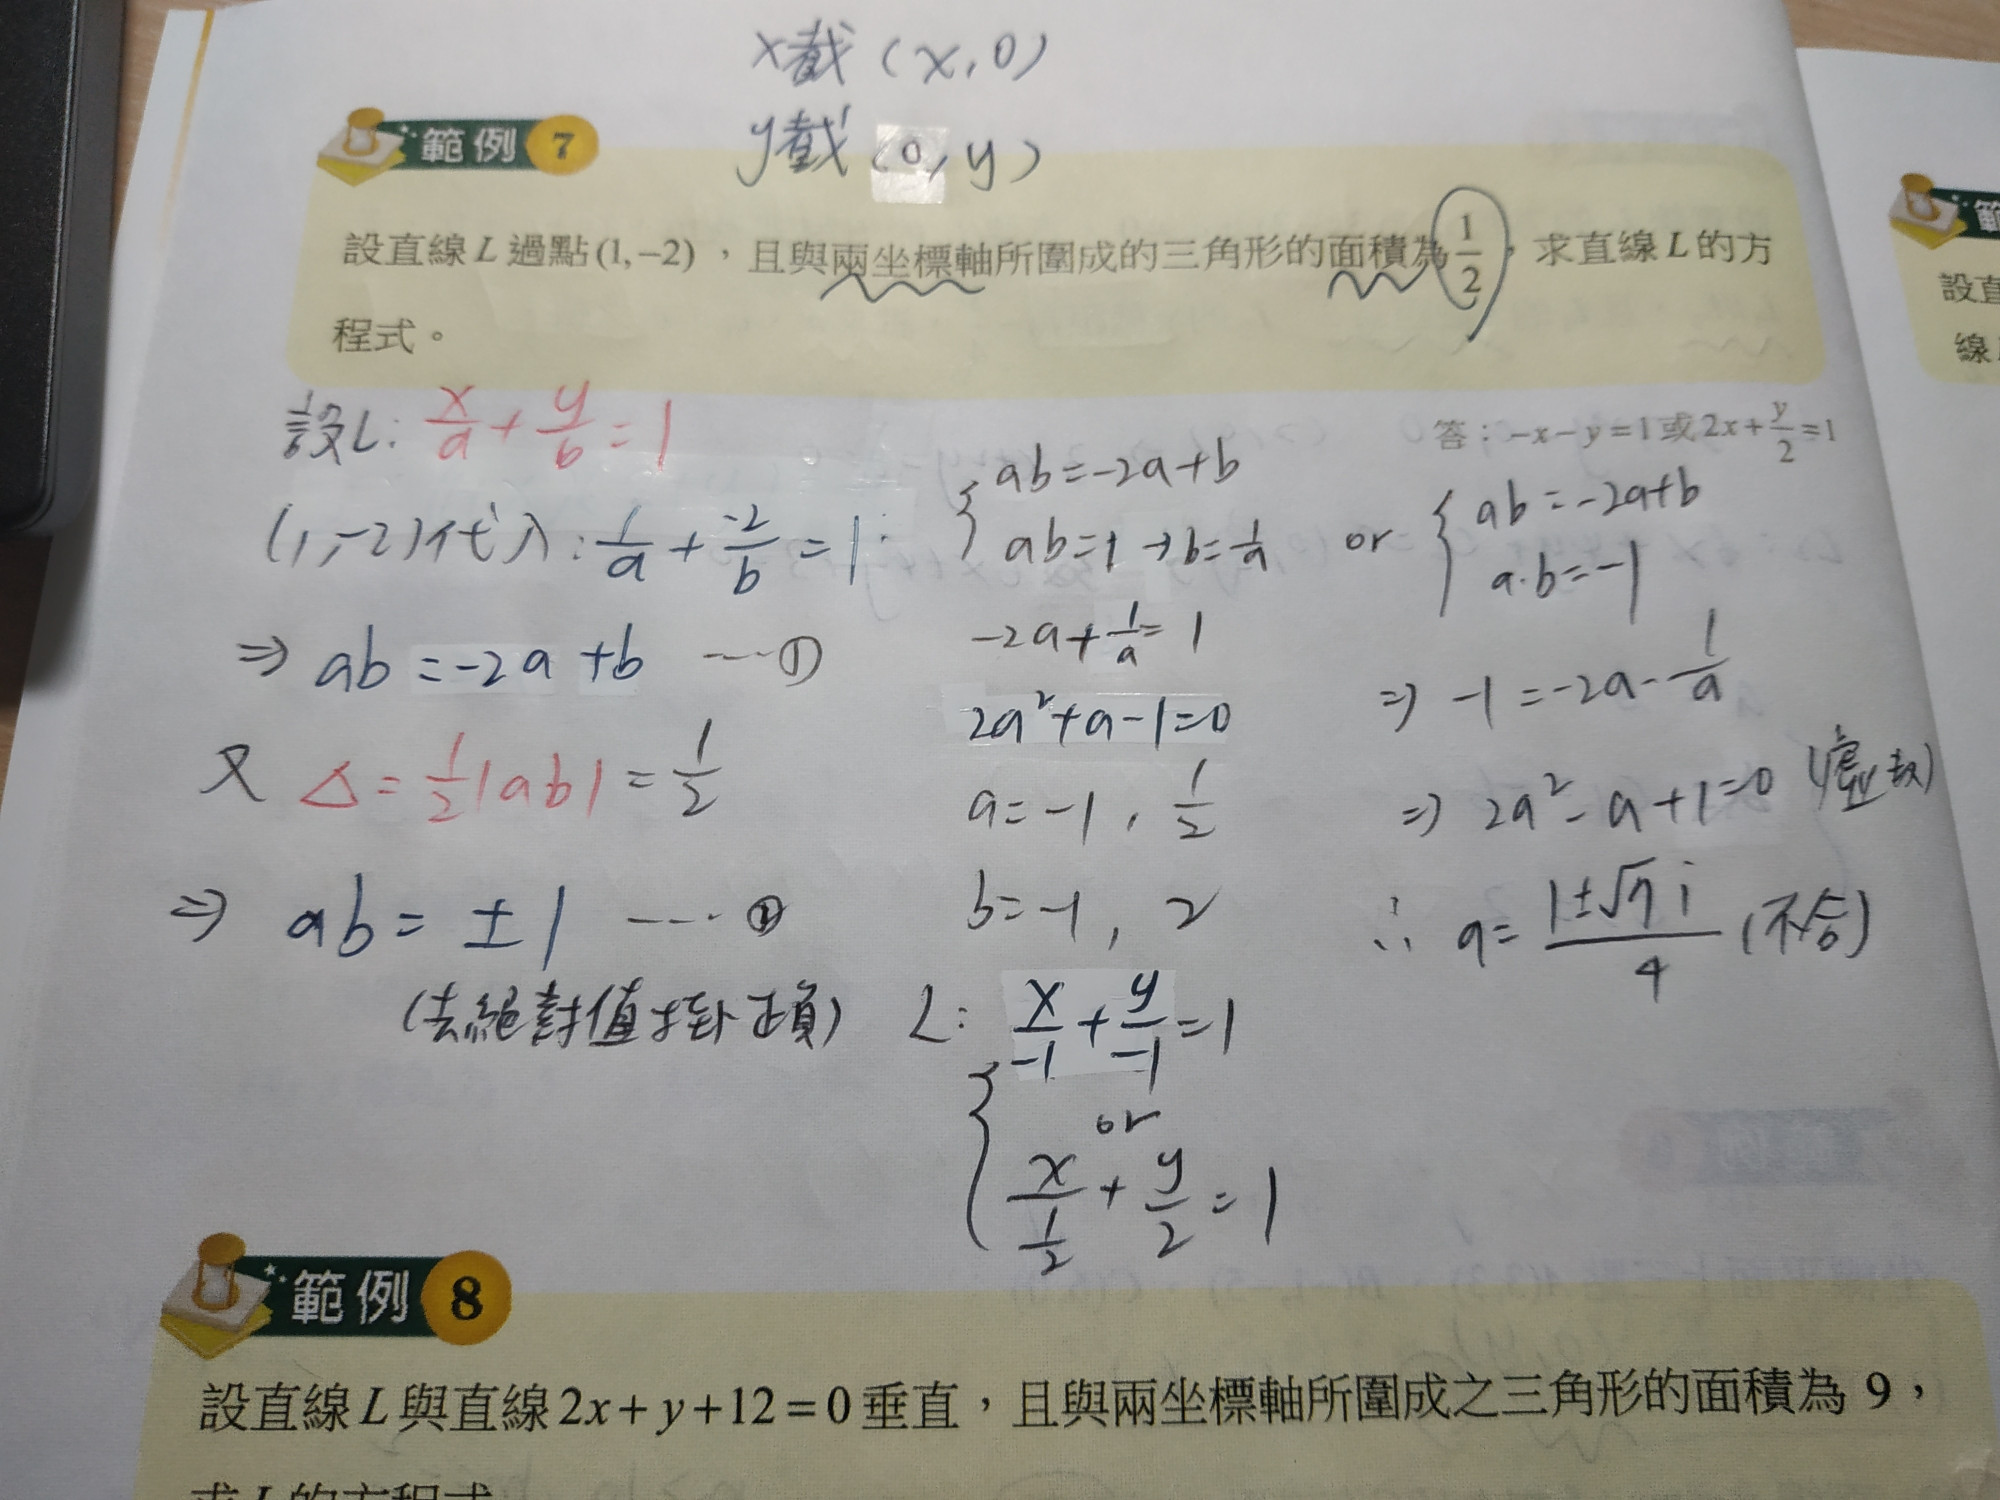 x截(x,0)
y截(0,y)
範例 7
設直線L過點(1,−2),且與兩坐標軸所圍成的三角形的面積為1/2,求直線L的方
程式。
答:−x−y=1或2x+y/2=1
設L: x/a + y/b = 1
(1,-2)代入: 1/a + -2/b = 1
⇒ ab = -2a + b ----①
又 △ = 1/2|ab| = 1/2
⇒ ab = ±1 ----②
(去絕對值掛正負)
{ ab = -2a+b
ab = 1 → b = 1/a
-2a + 1/a = 1
2a²+a-1=0
a = -1, 1/2
b = -1, 2
L: { x/-1 + y/-1 = 1
or
x/(1/2) + y/2 = 1
or { ab = -2a+b
a·b = -1
⇒ -1 = -2a - 1/a
⇒ 2a² - a + 1 = 0 (虛數)
∴ a = (1±√7 i)/4 (不合)
範例 8
設直線L與直線2x+y+12=0垂直,且與兩坐標軸所圍成之三角形的面積為 9,
求L的方程式
範
設直
線